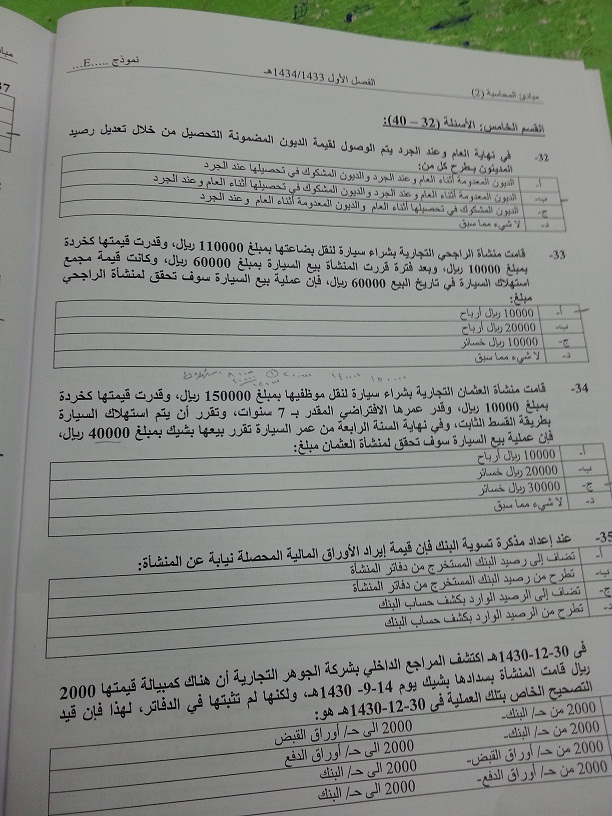 مبادئ المحاسبة (2)
الفصل الأول 1434/1433هـ
نموذج .....E...
القسم الخامس: الأسئلة (32 – 40):
32- في نهاية العام وعند الجرد يتم الوصول لقيمة الديون المضمونة التحصيل من خلال تعديل رصيد
المدينون بطرح كل من:
أ- الديون المعدومة أثناء العام وعند الجرد والديون المشكوك في تحصيلها عند الجرد
ب- الديون المعدومة أثناء العام وعند الجرد والديون المشكوك في تحصيلها أثناء العام وعند الجرد
ج- الديون المشكوك في تحصيلها أثناء العام والديون المعدومة أثناء العام وعند الجرد
د- لا شيء مما سبق
33- قامت منشأة الراجحي التجارية بشراء سيارة لنقل بضاعتها بمبلغ 110000 ريال، وقدرت قيمتها كخردة
بمبلغ 10000 ريال، وبعد فترة قررت المنشأة بيع السيارة بمبلغ 60000 ريال، وكانت قيمة مجمع
استهلاك السيارة في تاريخ البيع 60000 ريال، فإن عملية بيع السيارة سوف تحقق لمنشأة الراجحي
مبلغ:
أ- 10000 ريال أرباح
ب- 20000 ريال أرباح
ج- 10000 ريال خسائر
د- لا شيء مما سبق
34- قامت منشأة العثمان التجارية بشراء سيارة لنقل موظفيها بمبلغ 150000 ريال، وقدرت قيمتها كخردة
بمبلغ 10000 ريال، وقدر عمرها الافتراضي المقدر بـ 7 سنوات، وتقرر أن يتم استهلاك السيارة
بطريقة القسط الثابت، وفي نهاية السنة الرابعة من عمر السيارة تقرر بيعها بشيك بمبلغ 40000 ريال،
فإن عملية بيع السيارة سوف تحقق لمنشأة العثمان مبلغ:
أ- 10000 ريال أرباح
ب- 20000 ريال خسائر
ج- 30000 ريال خسائر
د- لا شيء مما سبق
35- عند إعداد مذكرة تسوية البنك فإن قيمة إيراد الأوراق المالية المحصلة نيابة عن المنشأة:
أ- تضاف إلى رصيد البنك المستخرج من دفاتر المنشأة
ب- تطرح من رصيد البنك المستخرج من دفاتر المنشأة
ج- تضاف إلى الرصيد الوارد بكشف حساب البنك
د- تطرح من الرصيد الوارد بكشف حساب البنك
في 30-12-1430هـ اكتشف المراجع الداخلي بشركة الجوهر التجارية أن هناك كمبيالة قيمتها 2000
ريال قامت المنشأة بسدادها بشيك يوم 14-9- 1430هـ، ولكنها لم تثبتها في الدفاتر، لهذا فإن قيد
التصحيح الخاص بتلك العملية في 30-12-1430هـ هو:
2000 من حـ/ البنك- 2000 الى حـ/ أوراق القبض
2000 من حـ/ البنك- 2000 الى حـ/ أوراق الدفع
2000 من حـ/ أوراق القبض- 2000 الى حـ/ البنك
2000 من حـ/ أوراق الدفع- 2000 الى حـ/ البنك